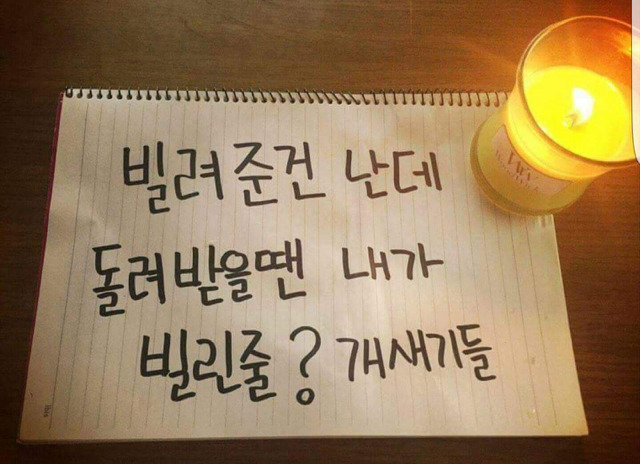 빌려준건 난데
돌려받을땐 내가
빌린줄? 개새기들